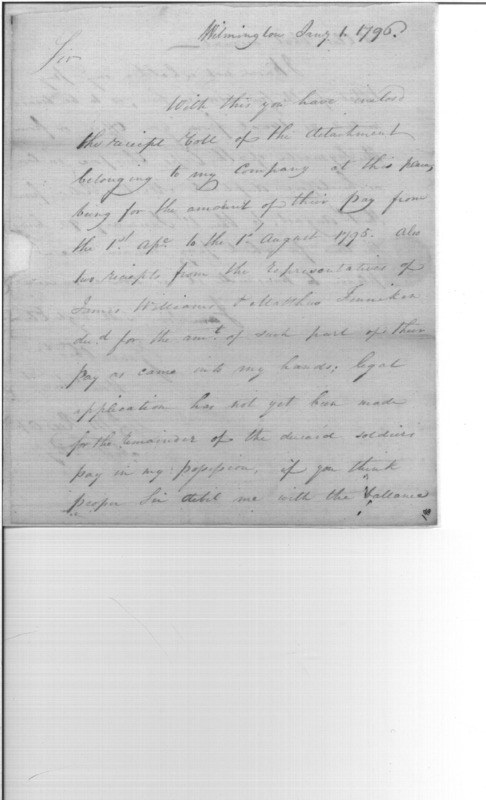 Wilmington Jany 1. 1796.
Sir
With this you have inclosd
the receipt Roll of the detachment
belonging to my Company at this place,
being for the amount of their pay from
the 1st Apl. to the 1st August 1795. Also
two receipts from the representatives of
James Williams & Matthew
decd for the amt. of such part of their
pay as came into my hands; legal
application has not yet been made
for the remainder of the deceasd soldiers
pay in my possession, if you think
proper Sir debit me with the ballance